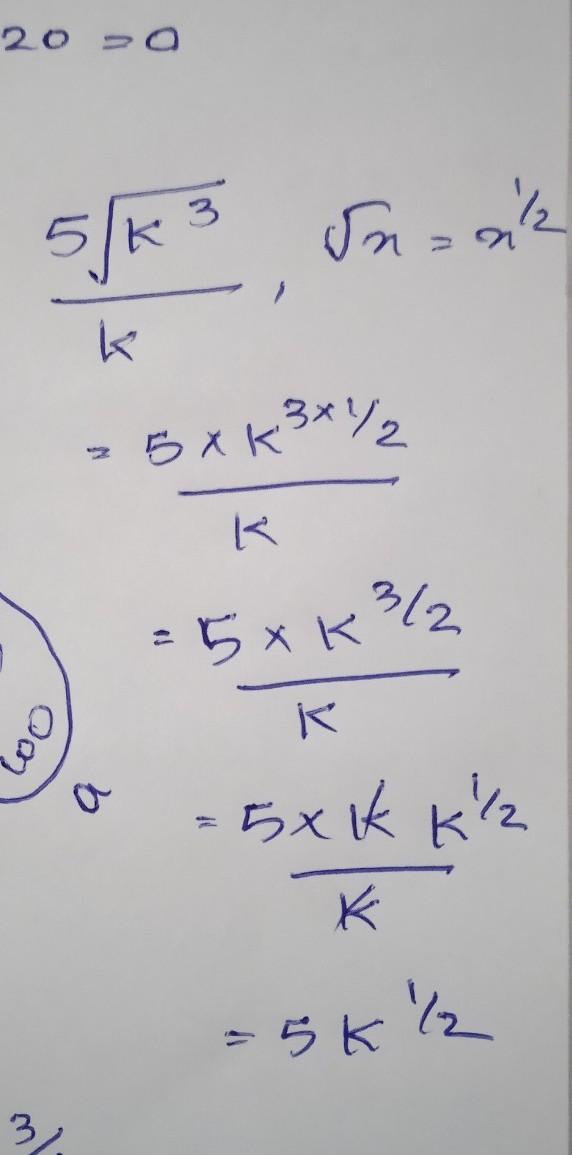 20 = 0
5√K³ / k , √x = x^1/2
= 5 × K^3×1/2 / K
= 5 × K^3/2 / K
= 5 × K K^1/2 / K
a
= 5 K^1/2
3/